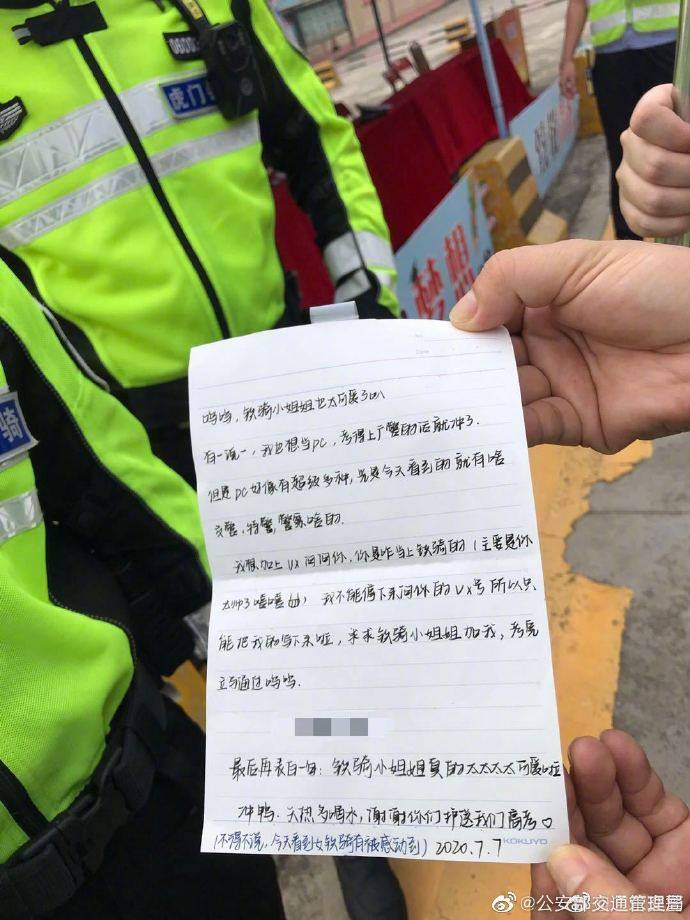 虎门
骑
梦想
No.
Date
呜呜，铁骑小姐姐也太可爱了叭
有一说一，我也想当PC，考得上广警的话就冲了
但是PC好像有超级多种，光是今天看到的就有啥
交警，特警，警察啥的.
我想加上vx问问你，你是咋当上铁骑的（主要是你
太帅了嘻嘻 我不能停下来问你的vx号所以只
能把我的写下来啦，求求铁骑小姐姐加我，考完
立马通过呜呜.
最后再表白一句：铁骑小姐姐真的太太太太可爱啦
冲鸭.天热多喝水，谢谢你们护送我们高考♡
（不得不说，今天看到女铁骑有被感动到）2020.7.7
KOKUYO
@公安部交通管理局